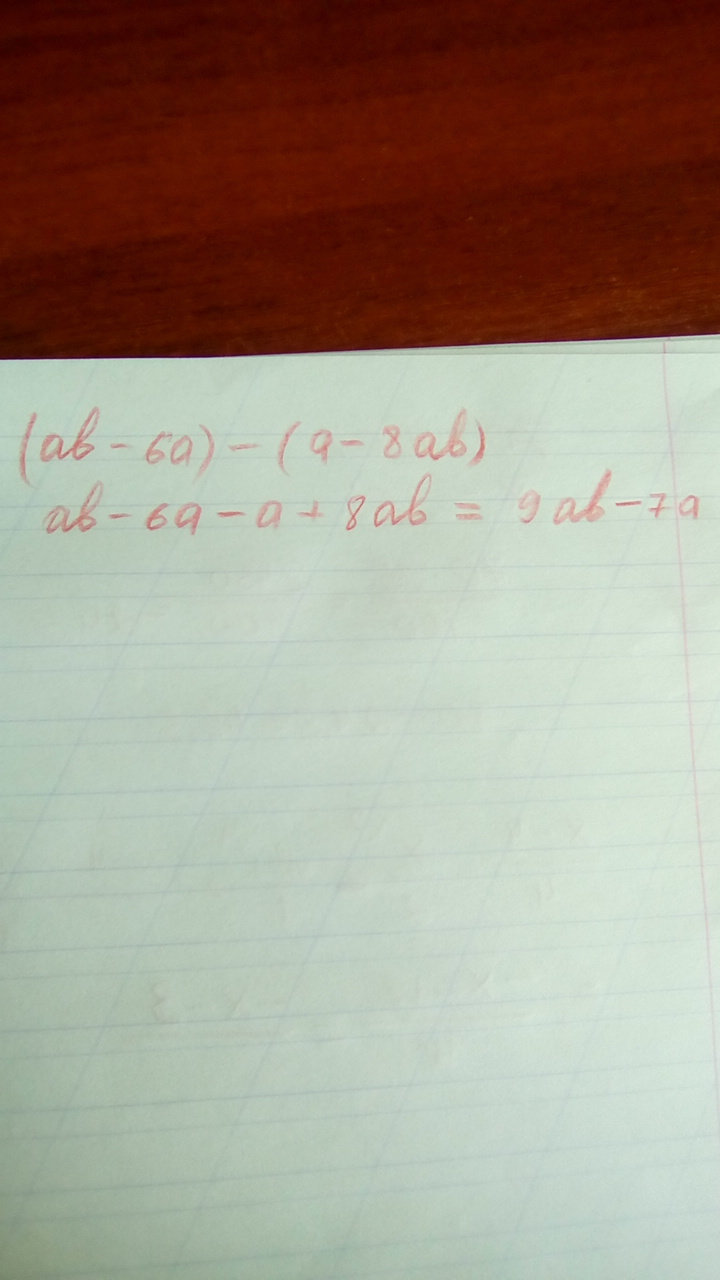 (ab - 6a) - (a - 8ab)
ab - 6a - a + 8ab = 9ab - 7a